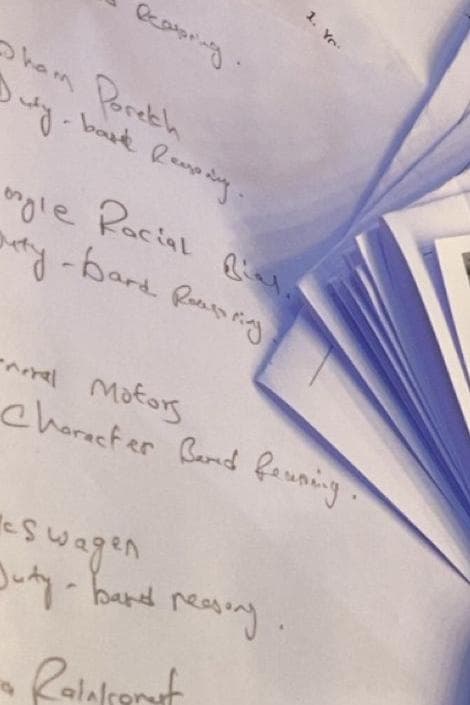 Reasoning.
oham Porekh
Duty-based Reasoning.
ogle Racial Bias.
uty-based Reasoning
neral Motors
Character Based Reasoning.
kswagen
Duty-based reasong.